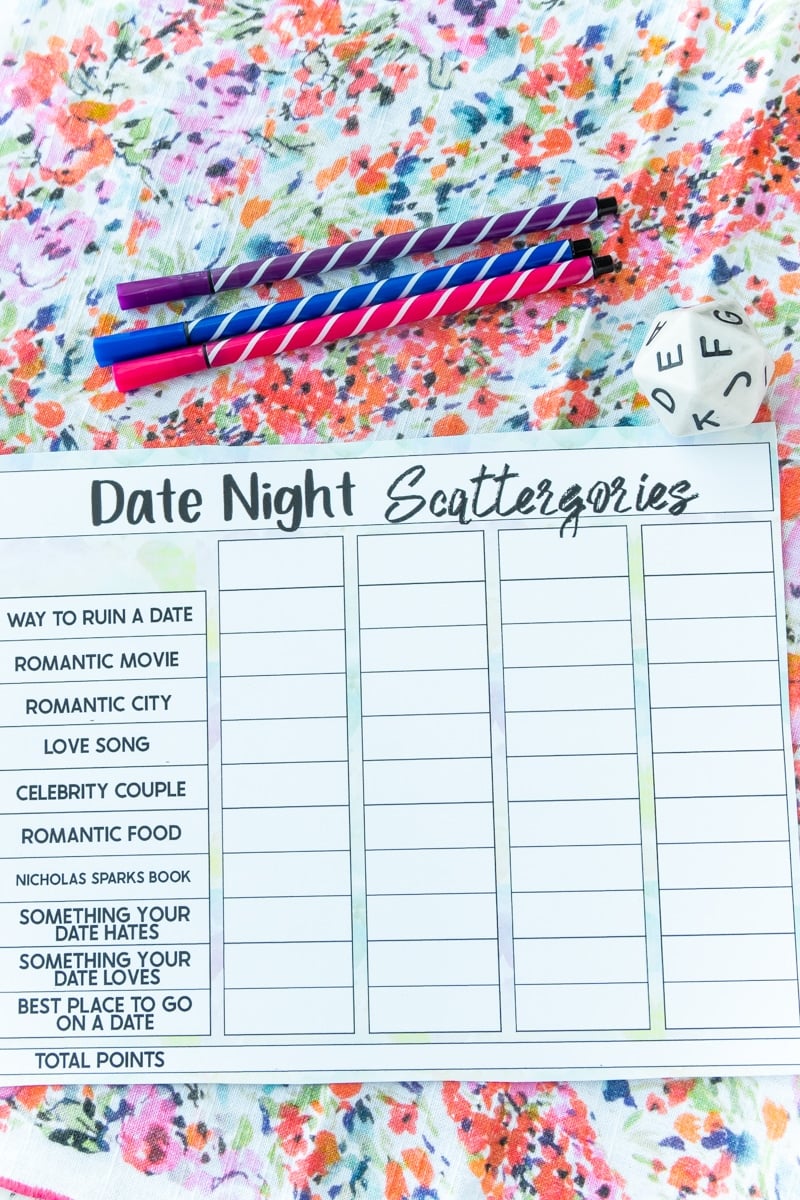 H
E
F
G
D
K
J
Date Night Scattergories
WAY TO RUIN A DATE
ROMANTIC MOVIE
ROMANTIC CITY
LOVE SONG
CELEBRITY COUPLE
ROMANTIC FOOD
NICHOLAS SPARKS BOOK
SOMETHING YOUR
DATE HATES
SOMETHING YOUR
DATE LOVES
BEST PLACE TO GO
ON A DATE
TOTAL POINTS